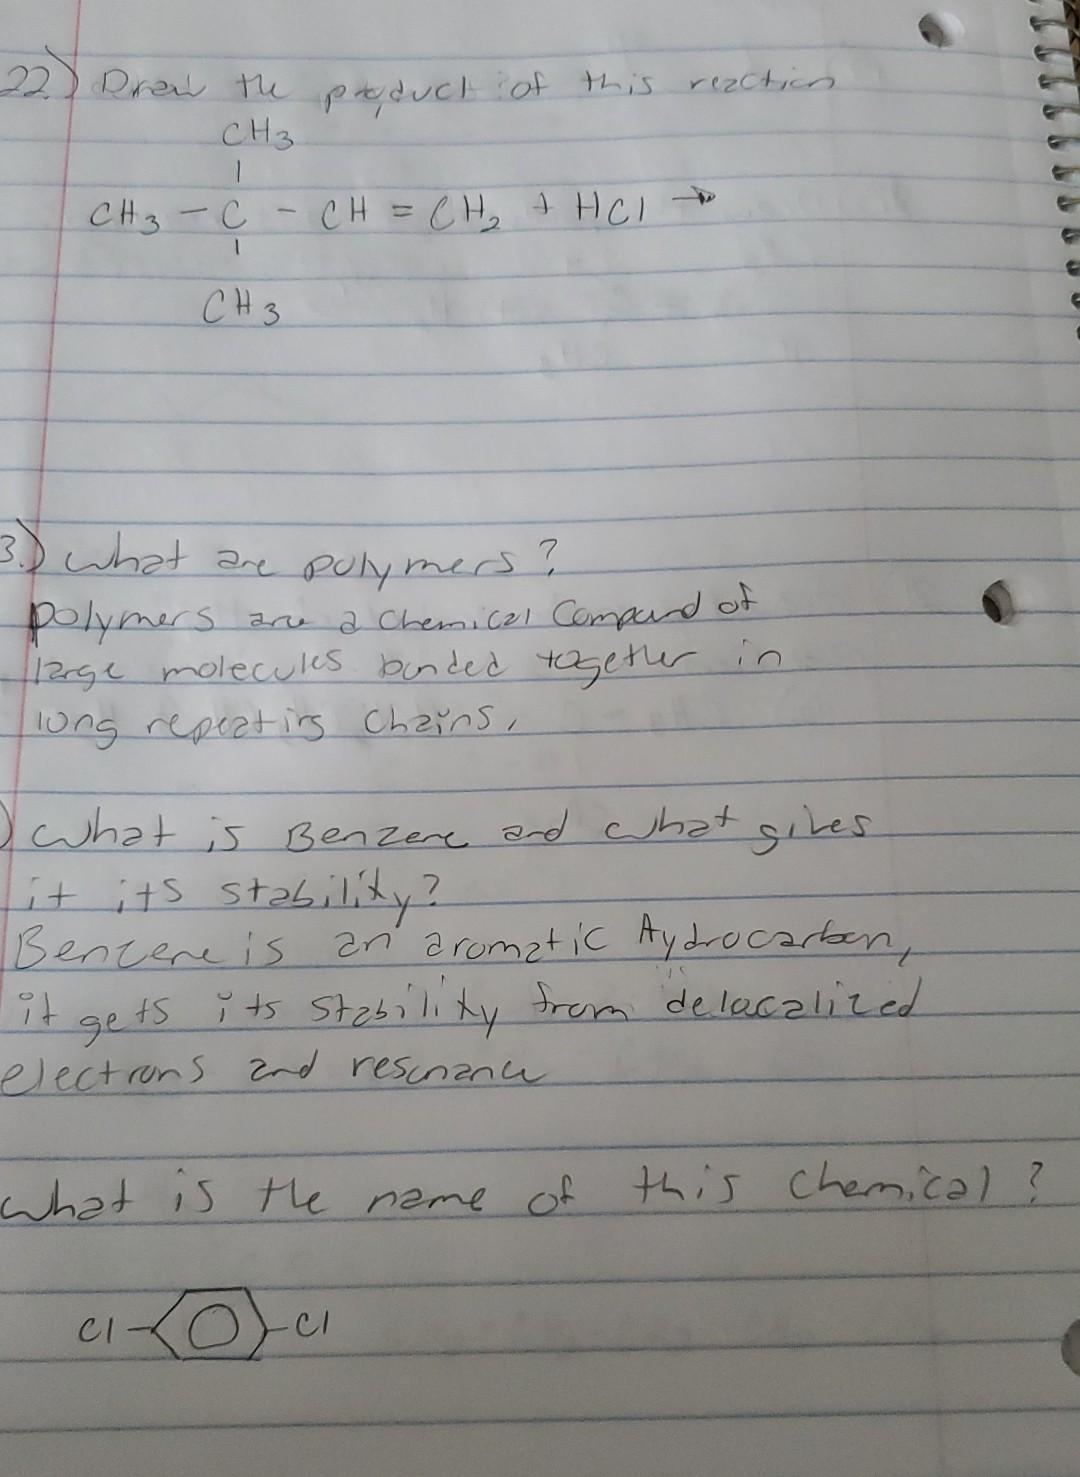 22.) Draw the product of this reaction
CH3
|
CH3 - C - CH = CH2 + HCl →
|
CH3
3.) What are polymers?
polymers are a chemical compound of
large molecules bonded together in
long repeating chains.
) What is Benzene and what gives
it its stability?
Benzene is an aromatic Hydrocarbon,
it gets its stability from delocalized
electrons and resonance
What is the name of this chemical?
Cl- -Cl